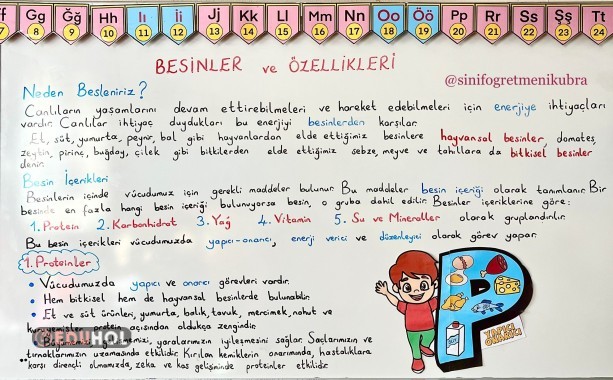 F Gg Ğğ Hh Iı İi Jj Kk Ll Mm Nn Oo Öö Pp Rr Ss Şş Tt
7 8 9 10 11 12 13 14 15 16 17 18 19 20 21 22 23 24
BESİNLER ve ÖZELLİKLERİ
@sinifogretmenikubra
Neden Besleniriz?
Canlıların yaşamlarını devam ettirebilmeleri ve hareket edebilmeleri için enerjiye ihtiyaçları
vardır. Canlılar ihtiyaç duydukları bu enerjiyi besinlerden karşılar.
Et, süt, yumurta, peynir, bal gibi hayvanlardan elde ettiğimiz besinlere hayvansal besinler, domates,
zeytin, pirinç, buğday, çilek gibi bitkilerden elde ettiğimiz sebze, meyve ve tahıllara da bitkisel besinler
denir.
Besin İçerikleri
Besinlerin içinde vücudumuz için gerekli maddeler bulunur. Bu maddeler besin içeriği olarak tanımlanır. Bir
besinde en fazla hangi besin içeriği bulunuyorsa besin, o gruba dahil edilir. Besinler içeriklerine göre:
1. Protein 2. Karbonhidrat 3. Yağ 4. Vitamin 5. Su ve Mineraller olarak gruplandırılır.
Bu besin içerikleri vücudumuzda yapıcı-onarıcı, enerji verici ve düzenleyici olarak görev yapar.
1. Proteinler
• Vücudumuzda yapıcı ve onarıcı görevleri vardır.
• Hem bitkisel hem de hayvansal besinlerde bulunabilir.
• Et ve süt ürünleri, yumurta, balık, tavuk, mercimek, nohut ve
protein açısından oldukça zengindir.
EDUHOL
yaralarımızın iyileşmesini sağlar. Saçlarımızın ve
tırnaklarımızın uzamasında etkilidir. Kırılan kemiklerin onarımında, hastalıklara
karşı dirençli olmamızda, zeka ve kas gelişiminde proteinler etkilidir.
P
YAPICI
ONARICI